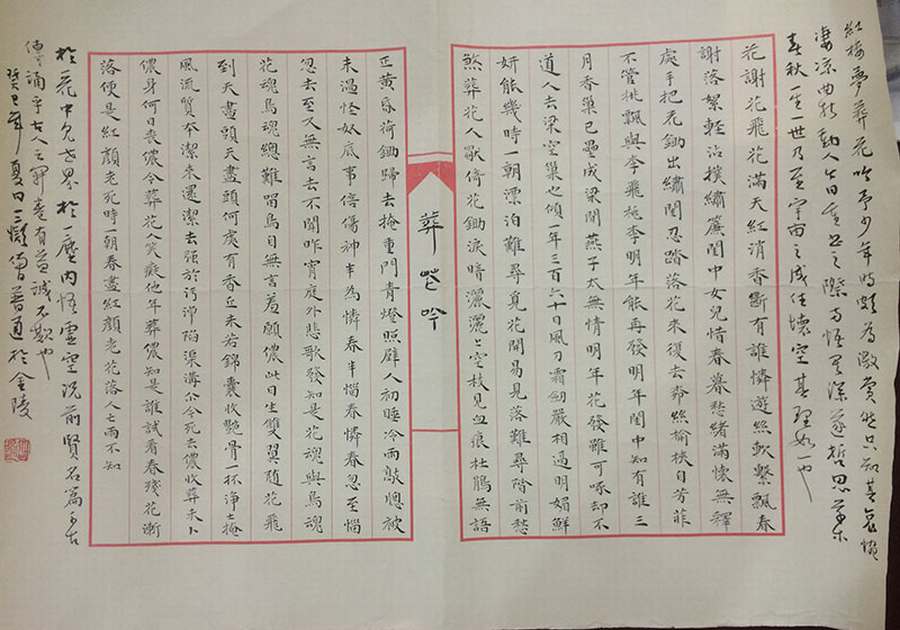 紅樓夢葬花吟予少年時頗為激賞然只知其哀婉
凄凉曲折動人今日重書之際方悟其深邃哲思草木
春秋一世乃至宇宙之成住壞空其理如一也
花謝花飛花滿天紅消香斷有誰憐遊絲軟繫飄春
謝落絮輕沾撲繡簾閨中女兒惜春暮愁緒滿懷無釋
處手把花鋤出繡閨忍踏落花來復去莎絲榆莢自芳菲
不管桃飄與李飛桃李明年能再發明年閨中知有誰三
月香巢已壘成梁間燕子太無情明年花發雖可啄却不
道人去梁空巢也傾一年三百六十日風刀霜劍嚴相逼明媚鮮
妍能幾時一朝漂泊難尋覓花開易見落難尋階前愁
煞葬花人獨倚花鋤淚暗灑灑上空枝見血痕杜鵑無語
葬花吟
正黃昏荷鋤歸去掩重門青燈照壁人初睡冷雨敲窗被
未溫怪奴底事倍傷神半為憐春半惱春憐春忽至惱
忽去至又無言去不聞昨宵庭外悲歌發知是花魂與鳥魂
花魂鳥魂總難留鳥自無言羞願儂此日生雙翼隨花飛
到天盡頭天盡頭何處有香丘未若錦囊收艷骨一抔淨土掩
風流質本潔來還潔去强於污淖陷渠溝尔今死去儂收葬未卜
儂身何日喪儂今葬花人笑癡他年葬儂知是誰試看春殘花漸
落便是紅顏老死時一朝春盡紅顏老花落人亡兩不知
於一花中見世界於一塵內悟虛空況前賢名篇古
傳誦乎古人云開卷有益誠不欺也
癸巳年夏日三癡僧普通於金陵